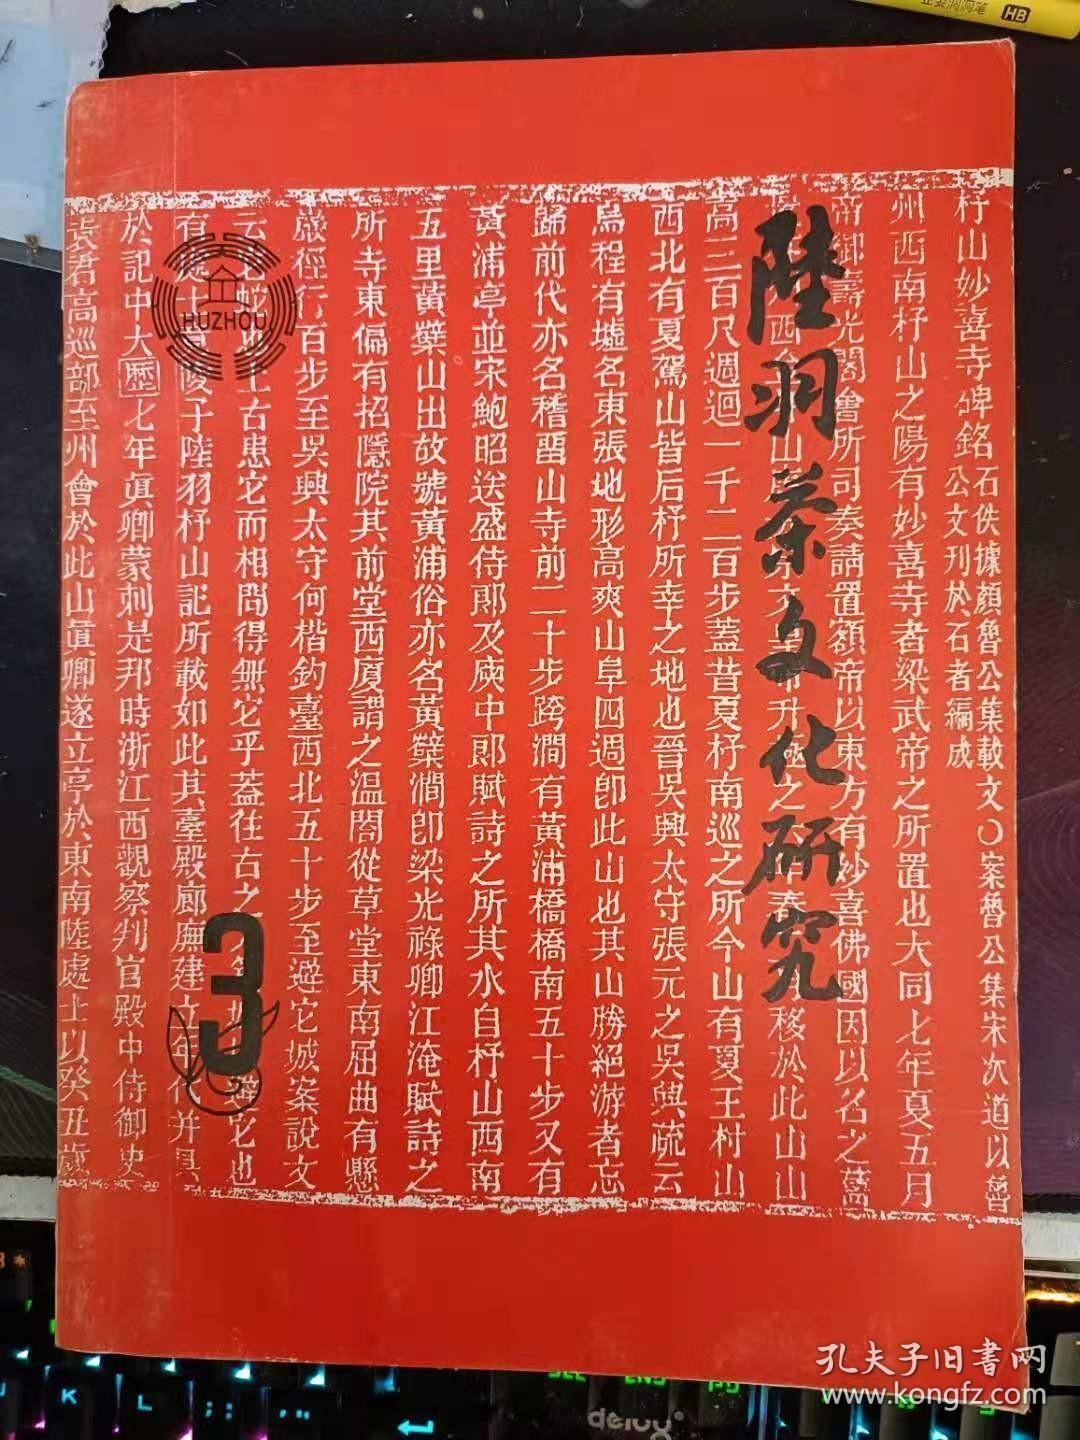 陸羽茶文化研究
杼山妙喜寺碑銘
石佚據顏魯公集載文〇案魯公集宋次道以魯
公文刊於石者編成
州西南杼山之陽有妙喜寺者梁武帝之所置也大同七年夏五月
帝御壽光閣會所司奏請置額帝以東方有妙喜佛國因以名之舊
移於此山山
高三百尺週迴一千二百步蓋昔夏杼南巡之所今山有夏王村山
西北有夏駕山皆后杼所幸之地也晉吳興太守張元之吳興疏云
烏程有墟名東張地形高爽山阜四週卽此山也其山勝絕游者忘
歸前代亦名稽畱山寺前二十步跨澗有黃浦橋橋南五十步又有
黃浦亭並宋鮑昭送盛侍郞及庾中郞賦詩之所其水自杼山西南
五里黃蘗山出故號黃浦俗亦名黃蘗澗卽梁光祿卿江淹賦詩之
所寺東偏有招隱院其前堂西廈謂之溫閣從草堂東南屈曲有懸
巖徑行百步至吳興太守何楷釣臺西北五十步至避它城案說文
云它蛇也上古患它而相問得無它乎蓋往古之
它也
有處士
陵子陸羽杼山記所載如此其臺殿廊廡建立年代并具
於記中大歷七年眞卿蒙刺是邦時浙江西觀察判官殿中侍御史
袁君高巡部至州會於此山眞卿遂立亭於東南陸處士以癸丑歲
HUZHOU
3
HB
K
L
delux
孔夫子旧书网
www.kongfz.com